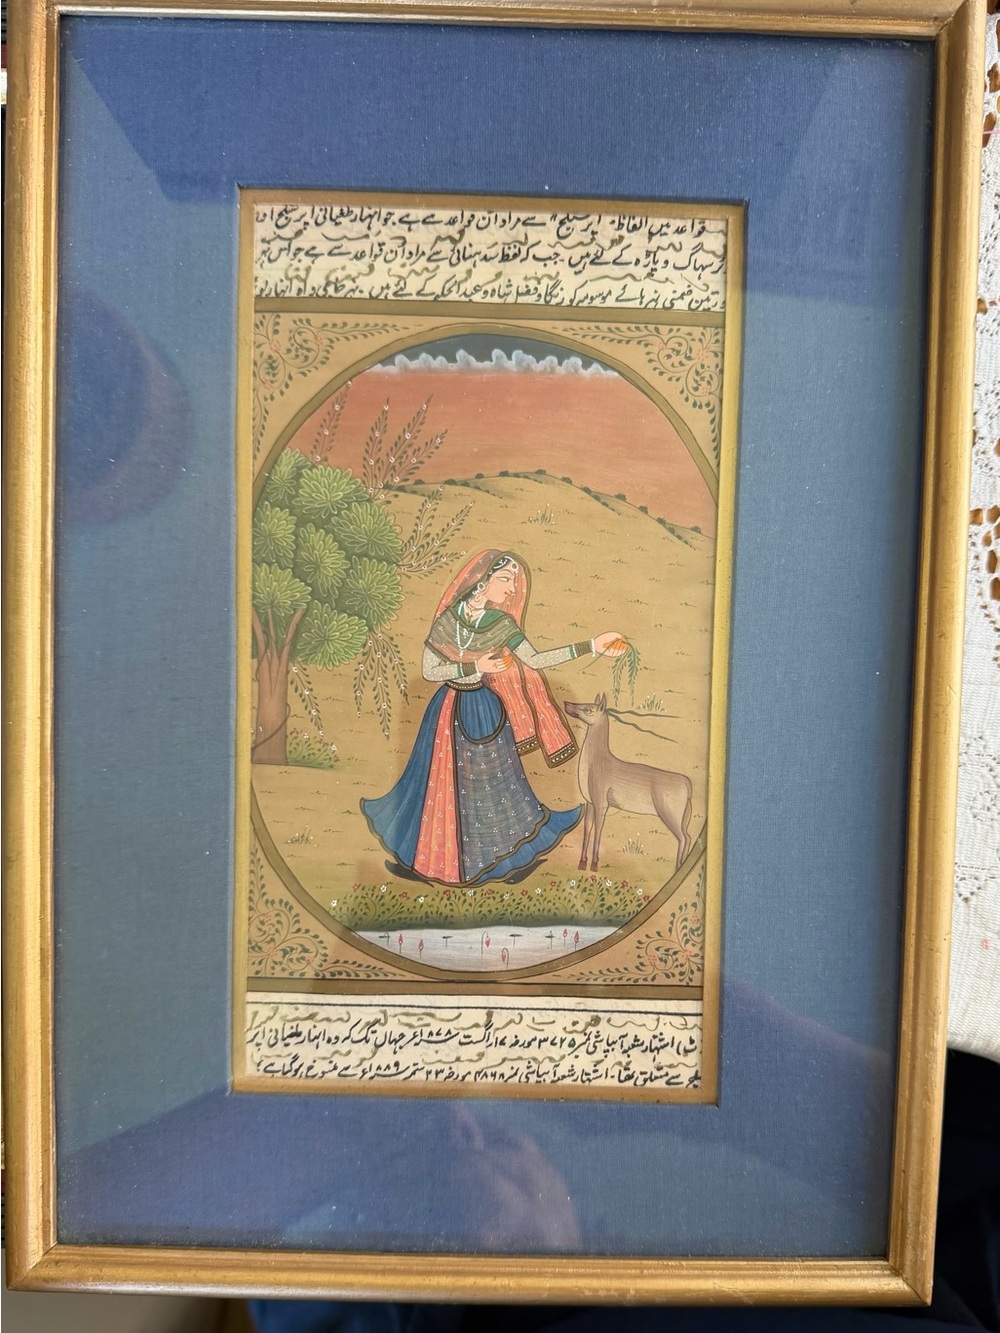 قواعد میں الفاظ " اپر ستلج " سے مراد ان قواعد سے ہے جو انہار طغیانی اپر ستلج اور
سہاگ و پاڑہ کے لئے ہیں ۔ جب کہ لفظ سدہنائی سے مراد ان قواعد سے ہے جو اس نہر
و تین ضمنی نہر ہائے موسومہ کورنگا و فضل شاہ و عبدالحکم کے لئے ہیں
اشتہار شعبہ آبپاشی نمبر ۳۷۲۵ مورخہ ۷ اگست ۱۸۷۸ء جہاں تک کہ وہ انہار طغیانی اپر
سے متعلق تھا ۔ اشتہار شعبہ آبپاشی نمبر ۴۸۶۸ مورخہ ۲۳ ستمبر ۱۸۸۹ء سے منسوخ ہو گیا ہے ؛